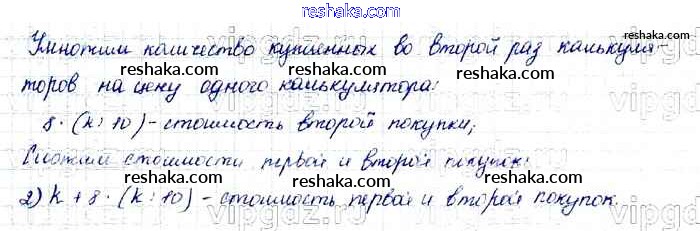 reshaka.com
Умножим количество купленных во второй раз калькуля-
reshaka.com
торов на цену одного калькулятора:
reshaka.com reshaka.com reshaka.com
8 · (k : 10) - стоимость второй покупки;
vipgdz.ru
Сложим стоимости первой и второй покупок:
reshaka.com reshaka.com reshaka.com
2) k + 8 · (k : 10) - стоимость первой и второй покупок.
reshaka.com